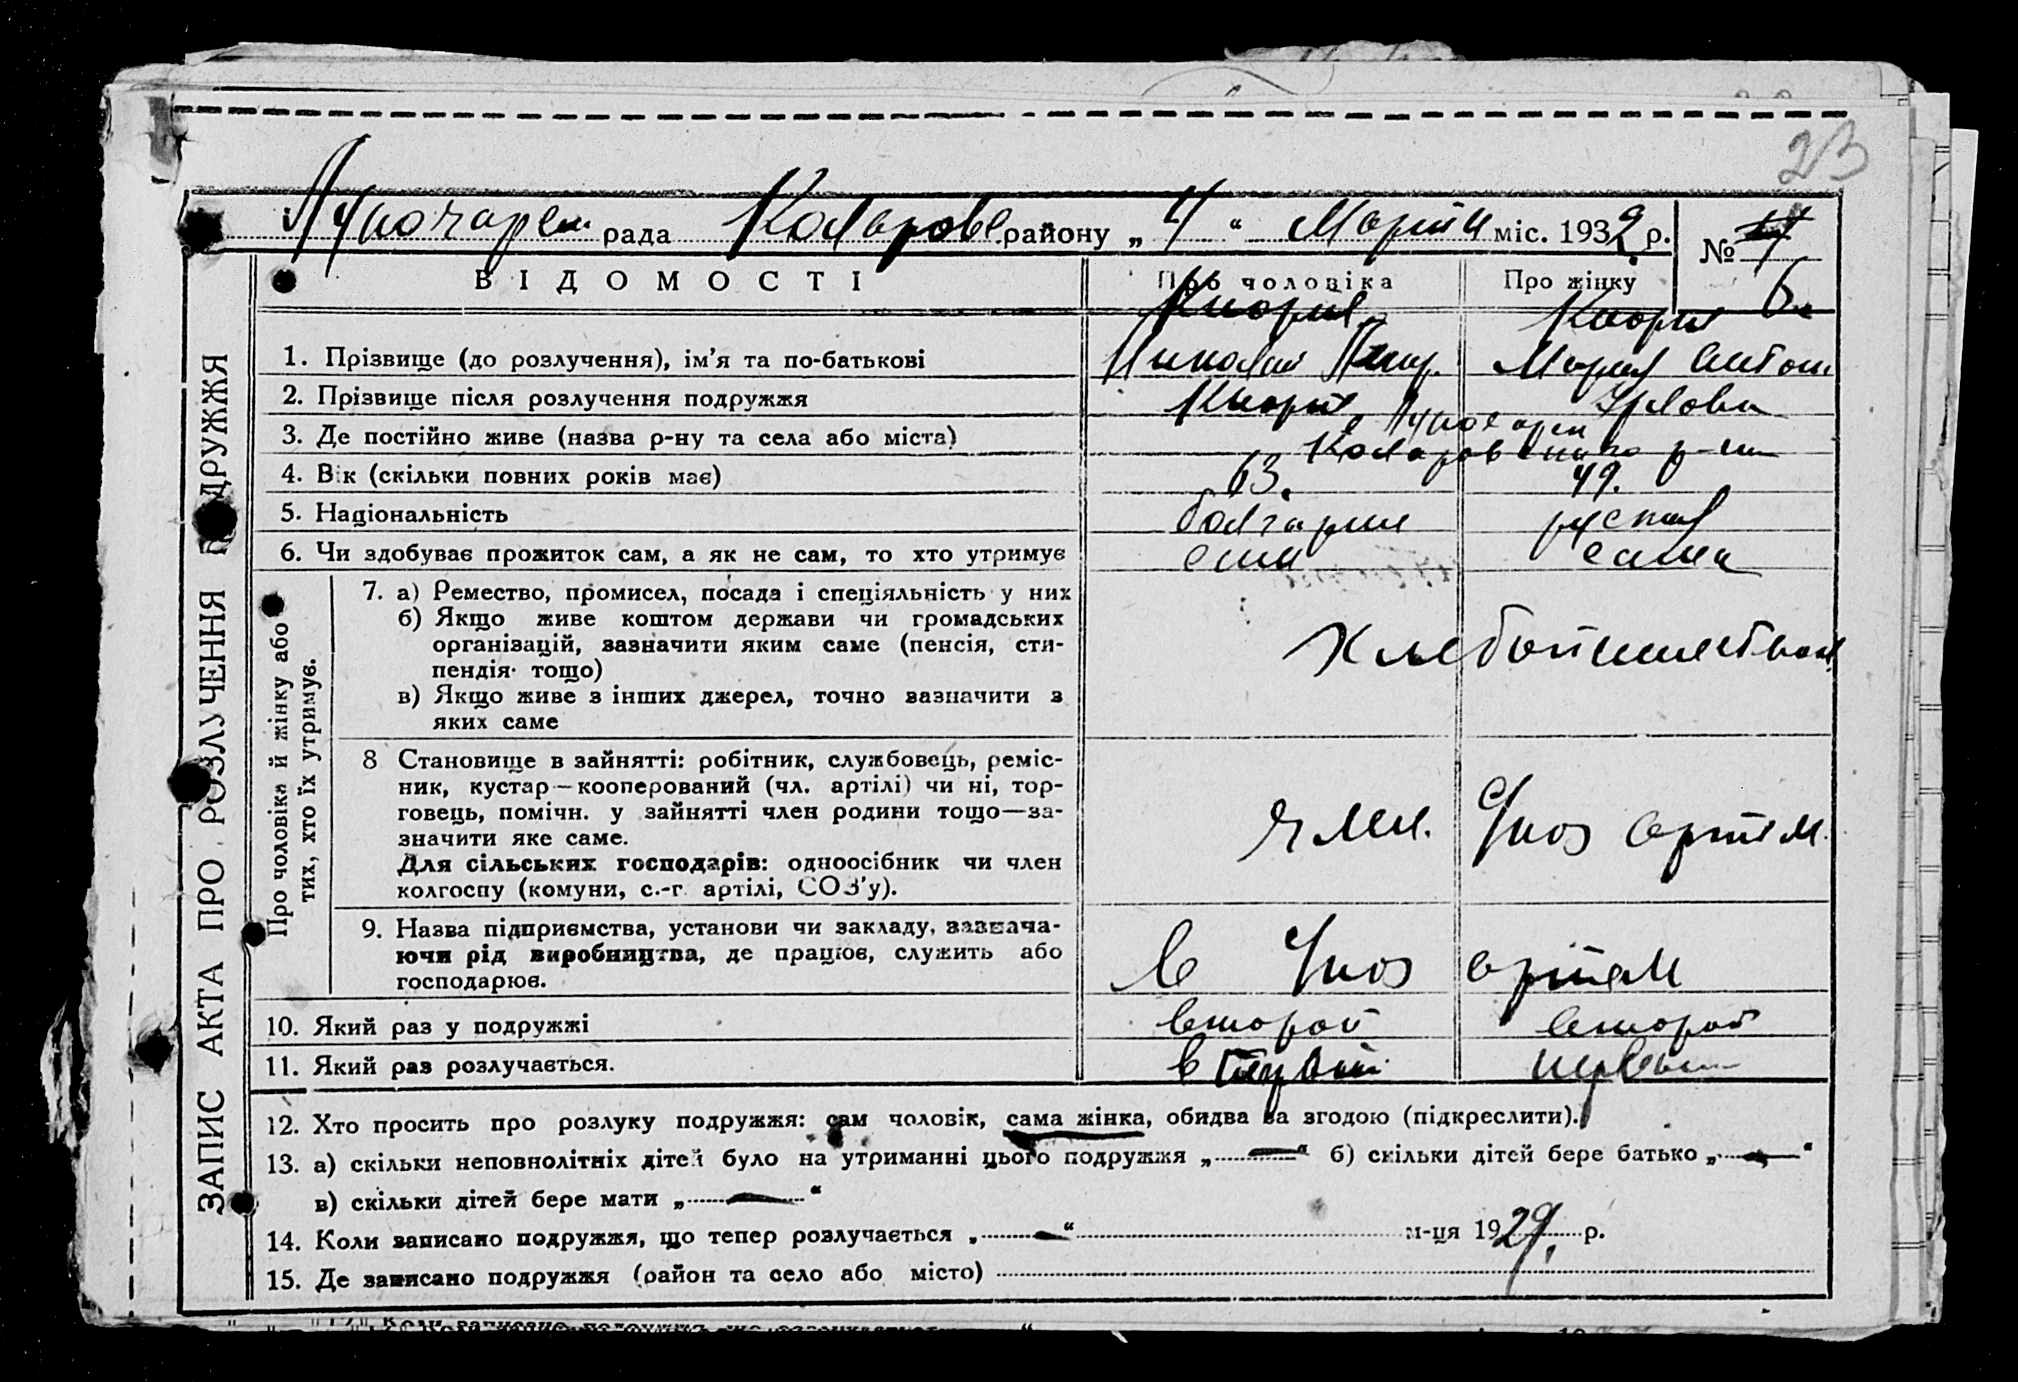 23
Луночарск. рада Коларовс. району „4“ Марта міс. 1932 р. № 6
ЗАПИС АКТА ПРО РОЗЛУЧЕННЯ ПОДРУЖЖЯ
ВІДОМОСТІ Про чоловіка Про жінку
1. Прізвище (до розлучення), ім’я та по-батькові
Николай Мария Антон.
2. Прізвище після розлучення подружжя
3. Де постійно живе (назва р-ну та села або міста) Луночарск
Коларовского р-на
4. Вік (скільки повних років має) 63. 49.
5. Національність болгарин руская
6. Чи здобуває прожиток сам, а як не сам, то хто утримує сам сама
Про чоловіка й жінку або
тих, хто їх утримує.
7. а) Ремество, промисел, посада і спеціяльність у них
б) Якщо живе коштом держави чи громадських
організацій, зазначити яким саме (пенсія, сти-
пендія тощо)
в) Якщо живе з інших джерел, точно зазначити з
яких саме
8 Становище в зайнятті: робітник, службовець, реміс-
ник, кустар—кооперований (чл. артілі) чи ні, тор-
говець, помічн. у зайнятті член родини тощо—за-
значити яке саме.
Для сільських господарів: одноосібник чи член
колгоспу (комуни, с.-г. артілі, СОЗ’у).
член. артел.
9. Назва підприємства, установи чи закладу, зазнача-
ючи рід виробництва, де працює, служить або
господарює.
в артел
10. Який раз у подружжі второй второй
11. Який раз розлучається. в первый первый
12. Хто просить про розлуку подружжя: сам чоловік, сама жінка, обидва за згодою (підкреслити).
13. а) скільки неповнолітніх дітей було на утриманні цього подружжя „—“ б) скільки дітей бере батько „—“
в) скільки дітей бере мати „—“
14. Коли записано подружжя, що тепер розлучається „—“ м-ця 1929. р.
15. Де записано подружжя (район та село або місто)